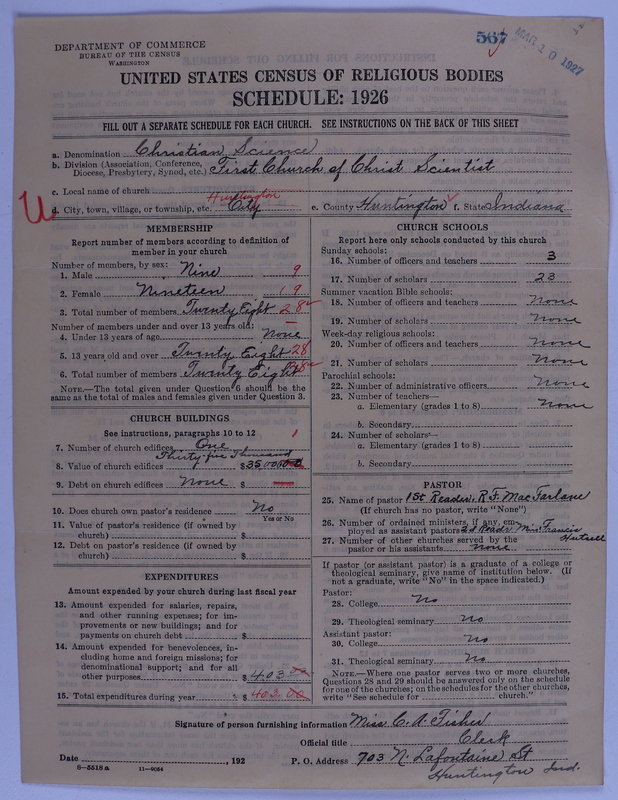 567 MAR 10 1927
DEPARTMENT OF COMMERCE
BUREAU OF THE CENSUS
WASHINGTON
UNITED STATES CENSUS OF RELIGIOUS BODIES
SCHEDULE: 1926
FILL OUT A SEPARATE SCHEDULE FOR EACH CHURCH. SEE INSTRUCTIONS ON THE BACK OF THIS SHEET
a. Denomination Christian Science
b. Division (Association, Conference,
Diocese, Presbytery, Synod, etc.) First Church of Christ Scientist
c. Local name of church
Huntington
U d. City, town, village, or township, etc. City e. County Huntington f. State Indiana
MEMBERSHIP
Report number of members according to definition of
member in your church
Number of members, by sex:
1. Male Nine 9
2. Female Nineteen 19
3. Total number of members Twenty Eight 28
Number of members under and over 13 years old:
4. Under 13 years of age None
5. 13 years old and over Twenty Eight 28
6. Total number of members Twenty Eight 28
NOTE.—The total given under Question 6 should be the
same as the total of males and females given under Question 3.
CHURCH BUILDINGS
See instructions, paragraphs 10 to 12
7. Number of church edifices One 1
Thirty five Thousand
8. Value of church edifices $ 35,000
9. Debt on church edifices None $
10. Does church own pastor's residence? No
Yes or No
11. Value of pastor's residence (if owned by
church) $
12. Debt on pastor's residence (if owned by
church) $
EXPENDITURES
Amount expended by your church during last fiscal year
13. Amount expended for salaries, repairs,
and other running expenses; for im-
provements or new buildings; and for
payments on church debt $
14. Amount expended for benevolences, in-
cluding home and foreign missions; for
denominational support; and for all
other purposes $ 403.00
15. Total expenditures during year $ 403.00
CHURCH SCHOOLS
Report here only schools conducted by this church
Sunday schools:
16. Number of officers and teachers 3
17. Number of scholars 23
Summer vacation Bible schools:
18. Number of officers and teachers None
19. Number of scholars None
Week-day religious schools:
20. Number of officers and teachers None
21. Number of scholars None
Parochial schools:
22. Number of administrative officers None
23. Number of teachers—
a. Elementary (grades 1 to 8) None
b. Secondary
24. Number of scholars—
a. Elementary (grades 1 to 8)
b. Secondary
PASTOR
25. Name of pastor 1st Reader, R.F. MacFarlane
(If church has no pastor, write "None")
26. Number of ordained ministers, if any, em-
ployed as assistant pastors 2d Reader Miss Francis
27. Number of other churches served by the
pastor or his assistants None
If pastor (or assistant pastor) is a graduate of a college or
theological seminary, give name of institution below. (If
not a graduate, write "No" in the space indicated.)
Pastor:
28. College No
29. Theological seminary No
Assistant pastor:
30. College No
31. Theological seminary No
NOTE.—Where one pastor serves two or more churches,
Questions 28 and 29 should be answered only on the schedule
for one of the churches; on the schedules for the other churches,
write "See schedule for church."
Signature of person furnishing information Miss C. A. Fisher
Official title Clerk
Date , 192 P. O. Address 703 N. Lafontaine St
8-5518 a 11-9054 Huntington Ind.